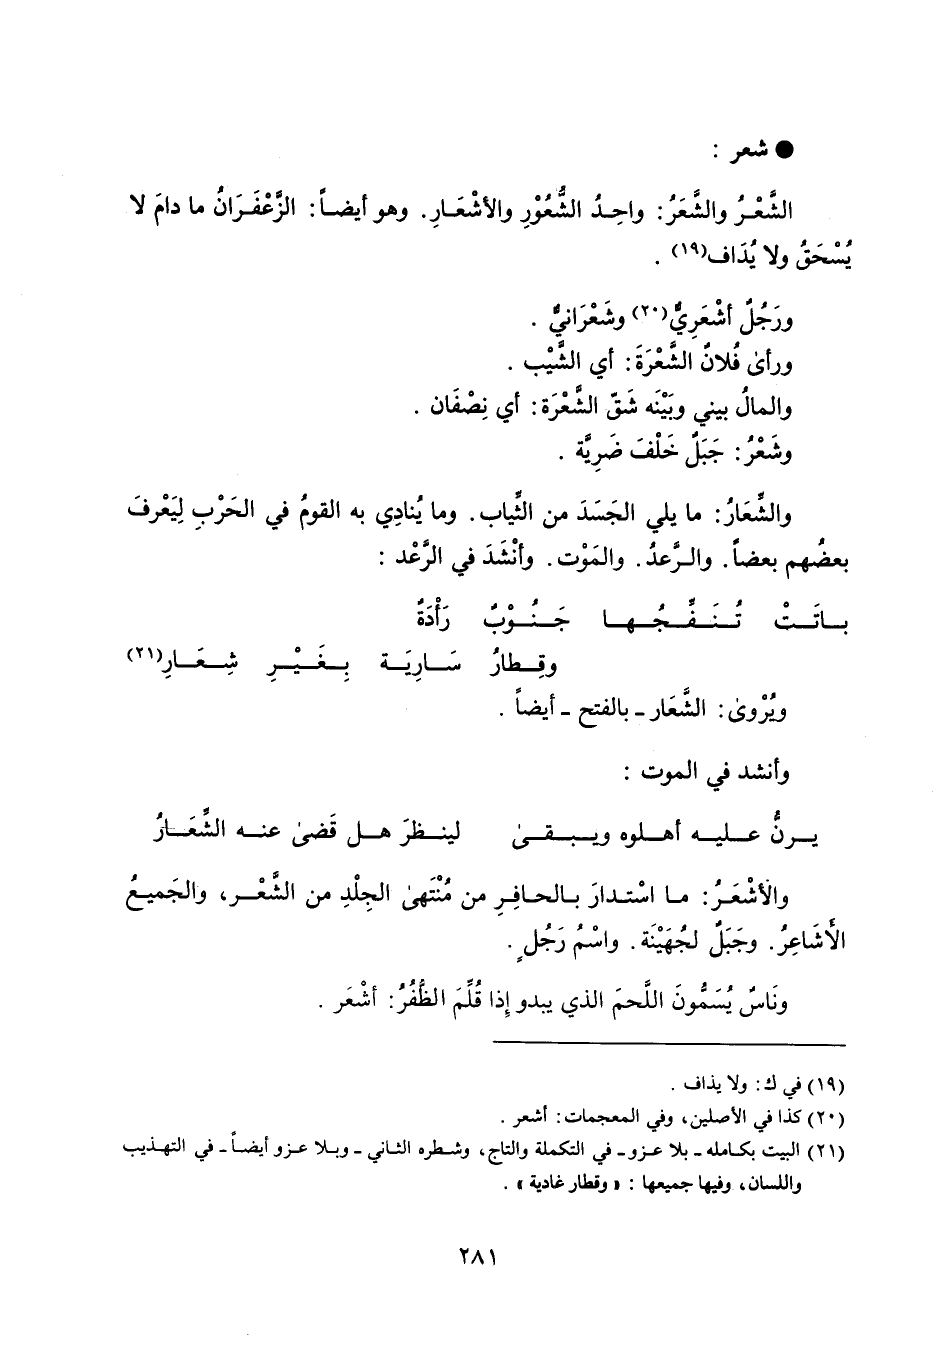 ● شعر :
الشَّعْرُ والشَّعَرُ: واحِدُ الشُّعُوْرِ والأشْعَارِ. وهو أيضاً: الزَّعْفَرَانُ ما دامَ لا
يُسْحَقُ ولا يُدَاف(١٩) .
ورَجُلٌ أشْعَرِيٌّ(٢٠) وشَعْرَانيٌّ .
ورأىٰ فُلانٌ الشَّعْرَةَ: أي الشَّيْب .
والمالُ بيني وبَيْنَه شَقّ الشَّعْرَة: أي نِصْفَان .
وشَعْرُ: جَبَلٌ خَلْفَ ضَرِيَّة .
والشِّعَارُ: ما يلي الجَسَدَ من الثِّياب. وما يُنادِي به القومُ في الحَرْبِ لِيَعْرفَ
بعضُهم بعضاً. والرَّعدُ. والمَوْت. وأنْشَدَ في الرَّعْد :
باتَتْ تُنَفِّجُها جَنُوْبٌ رَأْدَةٌ
وقِطارُ سَارِيَة بِغَيْرِ شِعَارِ(٢١)
ويُرْوىٰ: الشَّعَار ـ بالفتح ـ أيضاً .
وأنشد في الموت :
يرنُّ عليه أهلوه ويبقىٰ لينظرَ هل قَضىٰ عنه الشَّعَارُ
والأشْعَرُ: ما اسْتدارَ بالحافِرِ من مُنْتَهىٰ الجِلْدِ من الشَّعْر، والجَميعُ
الأَشَاعِرُ. وجَبَلٌ لجُهَيْنَة. واسْمُ رَجُلٍ .
ونَاسٌ يُسَمُّونَ اللَّحمَ الذي يبدو إذا قُلِّمَ الظُّفُرُ: أشْعَر .
(١٩) في ك: ولا يذاف .
(٢٠) كذا في الأصلين، وفي المعجمات: أشعر .
(٢١) البيت بكامله ـ بلا عزو ـ في التكملة والتاج، وشطره الثاني ـ وبلا عزو أيضاً ـ في التهذيب
واللسان، وفيها جميعها : « وقطار غادية » .
٢٨١